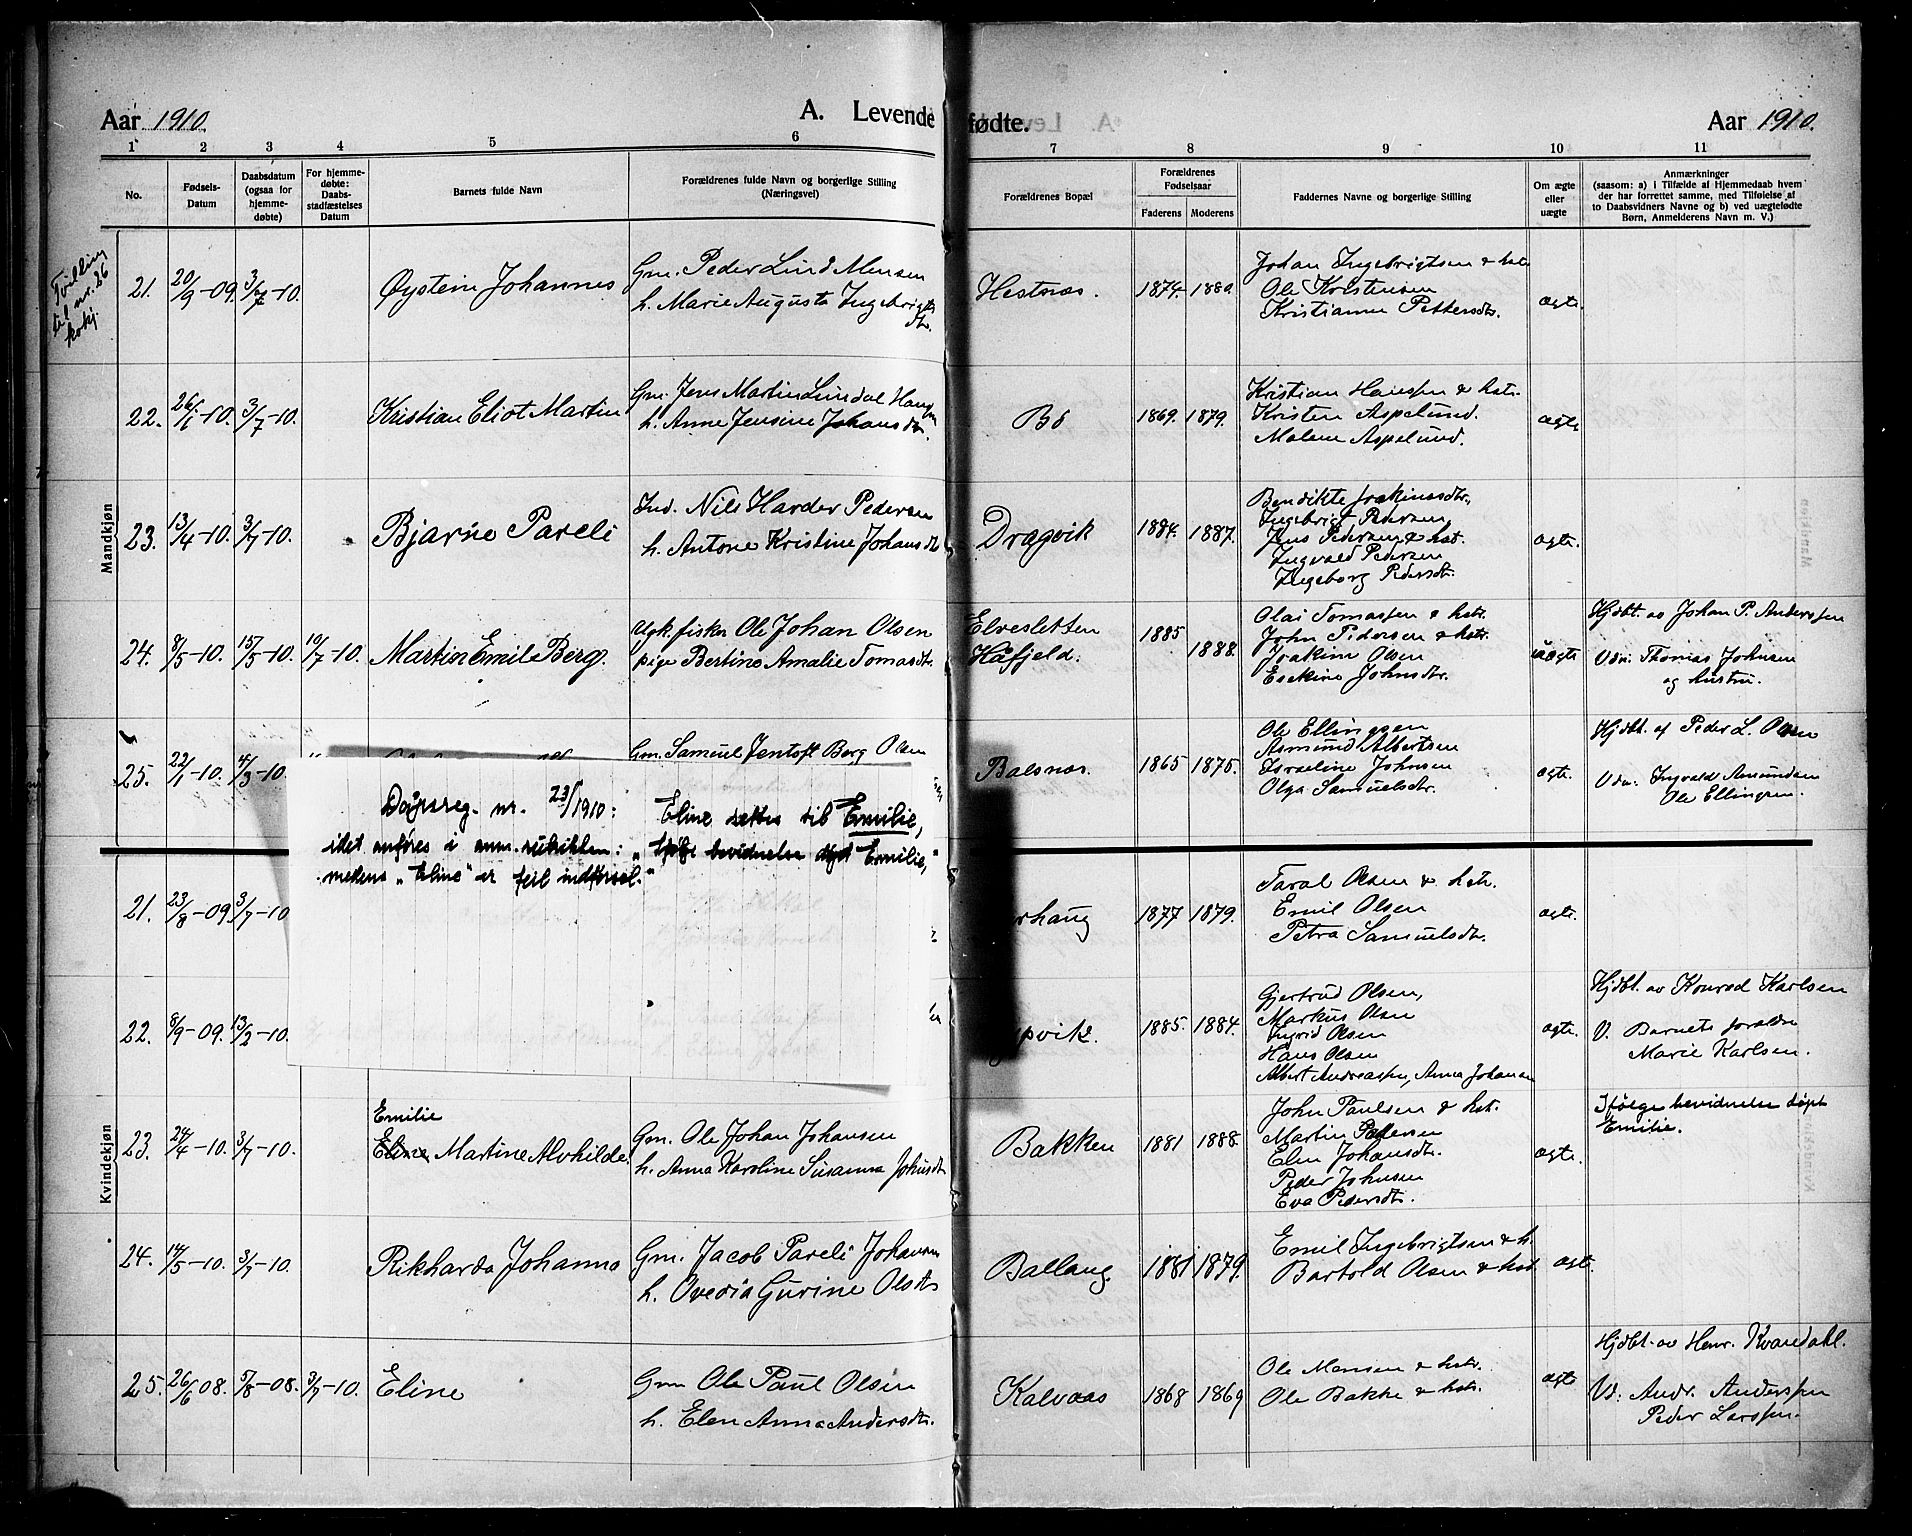 Aar 1910.
A. Levende
fødte.
Aar 1910.
1 2 3 4 5 6 7 8 9 10 11
No.
Fødsels-
Datum
Daabsdatum
(ogsaa for
hjemme-
døbte)
For hjemme-
døbte:
Daabs-
stadfæstelses
Datum
Barnets fulde Navn
Forældrenes fulde Navn og borgerlige Stilling
(Næringsvei)
Forældrenes Bopæl
Forældrenes
Fødselsaar
Faderens Moderens
Faddernes Navne og borgerlige Stilling
Om ægte
eller
uægte
Anmærkninger
(saasom: a) i Tilfælde af Hjemmedaab hvem
der har forrettet samme, med Tilføielse af
to Daabsvidners Navne og b) ved uægtefødte
Børn, Anmelderens Navn m. V.)
Tvilling
til nr. 26
kvkj.
Mandkjøn
21. 20/9-09. 3/7-10. Øystein Johannes
Gm. Peder Lind Mensen
h. Marie Augusta Ingebrigts
dtr.
Hestnæs. 1874. 1880.
Johan Ingebrigtsen & hst.
Ole Kristensen
Kristianne Pettersdtr.
ægte.
22. 26/1-10. 3/7-10. Kristian Eliot Martin
Gm. Jens Martin Lundal Hansen
h. Anne Jensine Johansdtr.
Bø 1869. 1879.
Kristian Hansen & hstr.
Kristen Aspelund.
Malene Aspelund.
ægte
23. 13/4-10. 3/7-10. Bjarne Pareli
Ind. Nils Harder Pedersen
h. Antone Kristine Johansdtr
Dragvik 1884. 1887.
Bendikte Joakimsdtr.
Ingebrigt Pedersen
Jens Pedersen & hst.
Ingvald Pedersen
Ingeborg Pedersdtr.
ægte.
24. 8/5-10. 15/5-10. 10/7-10. Martin Emil Berg.
Ugk. fisker Ole Johan Olsen
pige Bertine Amalie Tomasdtr.
Elvesletten
Håfjeld. 1885 1888.
Olai Tomassen & hstr.
John Pedersen & hstr.
Joakim Olsen
Esekine Johnsdtr.
uægte
Hjdbt. av Johan P. Anderssen
Vdn. Thomas Johnsen
og hustru.
25. 22/1-10. 4/3-10.
Gm. Samuel Jentoft Berg Olsen
Balsnes. 1865 1875.
Ole Ellingsen
Asmund Albertsen
Israeline Johnsen
Olga Samuelsdtr.
ægte.
Hjdbt. af Peder L. Olsen
Vdn. Ingvald Amundsen
Ole Ellingsen.
Dåpsreg. nr. 23/1910: Eline rettes til Emilie,
idet anføres i anm. rubrikken: "Ifølge bevidnelse døpt Emilie,"
medens "Eline" er feil indførsel."
Kvindekjøn
21. 23/8-09. 3/7-10
rhaug 1877 1879.
Taral Olsen & hstr.
Emil Olsen
Petra Samuelsdtr.
ægte.
22. 8/9-09. 13/2-10.
pvik. 1885. 1884.
Gjertrud Olsen,
Markus Olsen
Ingrid Olsen
Hans Olsen
Albert Andreassen, Anna Johansen
ægte.
Hjdbt. av Konrad Karlsen
V. Barnets forældre
Marie Karlsen.
Emilie
23. 24/4-10. 3/7-10. Eline Martine Alvhilde.
Gm. Ole Johan Johansen
h. Anna Karoline Susanna Johnsdtr
Bakken 1881 1888.
John Paulsen & hst.
Martin Pedersen
Elen Johansdtr.
Peder Johnsen
Eva Pedersdtr.
ægte.
Ifølge bevidnelse døpt
Emilie.
24. 14/5-10. 3/7-10. Rikharda Johanna
Gm. Jacob Pareli Johansen
h. Ovedia Gurine Olsdtr
Ballang. 1881 1879.
Emil Ingebrigtsen & h.
Bartold Olsen & hst.
ægt.
25. 26/6 08. 5/8-08. 3/7-10. Eline
Gm Ole Paul Olsen
h. Elen Anna Andersdtr.
Kalvaas 1868 1869
Ole Mensen & hstr.
Ole Bakke & hstr.
ægte
Hjdbt. av Henr. Kvandahl.
Vd. Andr. Anderssen
Peder Larssen.